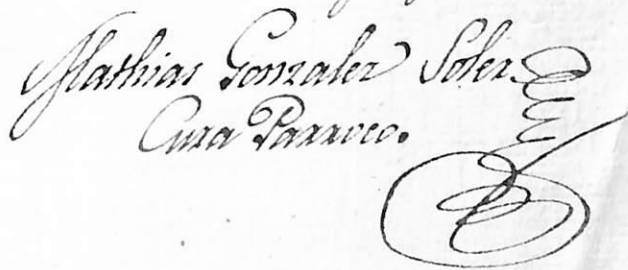 Mathias Gonzalez Soler
Cura Parroco.